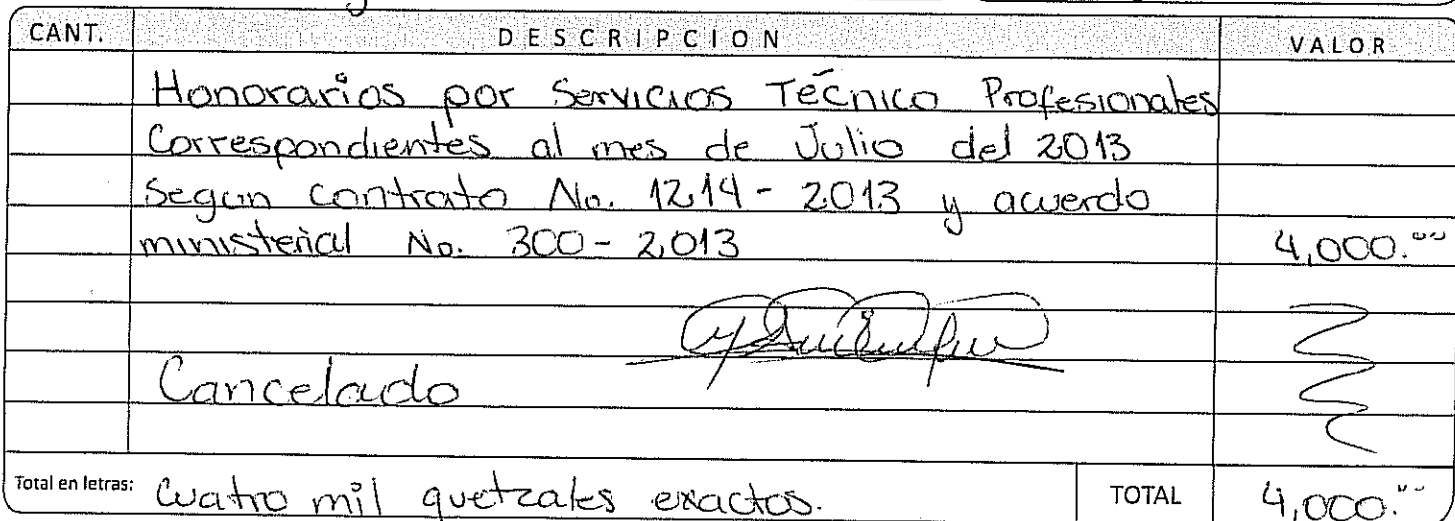 CANT. DESCRIPCION VALOR
Honorarios por Servicios Técnico Profesionales
Correspondientes al mes de Julio del 2013
Segun contrato No. 1214 - 2013 y acuerdo
ministerial No. 300 - 2,013 4,000.00
Cancelado
Total en letras: Cuatro mil quetzales exactos. TOTAL 4,000.00